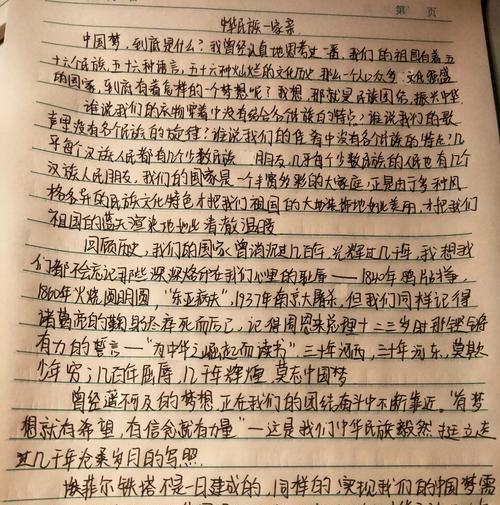 第 页
中华民族一家亲
中国梦,到底是什么?我曾经认真地思考过一番,我们的祖国有着五
十六个民族,五十六种语言,五十六种灿烂的文化历史,那么一个人口众多、文化
的国家,到底有着怎样的一个梦想呢?我想,那就是民族团结,振兴中华。
谁说我们的衣物穿着中没有融合各个民族的特点?谁说我们的歌
声里没有各个民族的旋律?谁说我们的住着中没有各个民族的特点?几
乎每个汉族人民都有几个少数民族朋友,几乎每个少数民族的人民也有几个
汉族人民朋友,我们的国家是一个丰富多彩的大家庭,正是由于多种风
格各异的民族文化特色才把我们祖国的大地装扮地如此美丽,才把我们
祖国的蓝天渲染地如此清澈温暖。
回顾历史,我们的国家曾消沉过几百年,光辉过几千年,我想我
们都不会忘记那些深深烙印在我们心里的耻辱——1840年鸦片战争,
1860年火烧圆明园,“东亚病夫”,1937年南京大屠杀,但我们同样记得
诸葛亮的鞠躬尽瘁死而后已,记得周恩来总理十二三岁时那铿锵
有力的誓言——“为中华之崛起而读书”,三十年河西,三十年河东,莫欺
少年穷;几百年屈辱,几千年辉煌,莫忘中国梦
曾经遥不可及的梦想,正在我们的团结奋斗中不断靠近。“有梦
想就有希望,有信念就有力量”——这是我们中华民族毅然挺立走
过几千年沧桑岁月的写照
埃菲尔铁塔不是一日建成的,同样的,实现我们的中国梦需